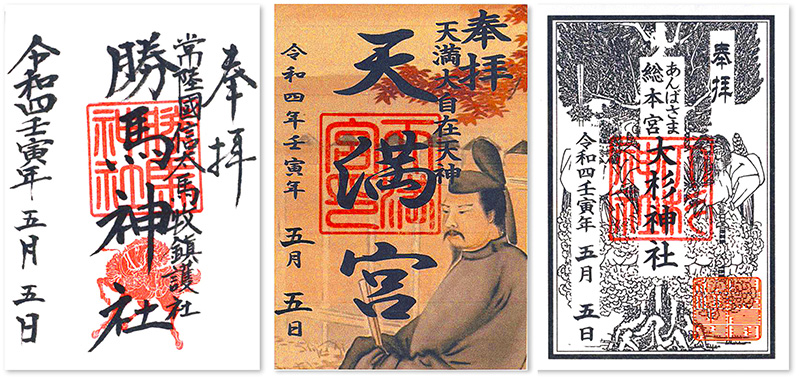 奉拝
常陸國信太馬牧鎮護社
勝馬神社
令和四壬寅年 五月 五日
奉拝
天満大自在天神
天満宮
令和四年壬寅年 五月 五日
奉拝
あんばさま
総本宮
大杉神社
令和四壬寅年 五月 五日